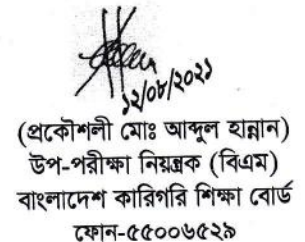 ১২/০৮/২০২১
(প্রকৌশলী মোঃ আব্দুল হান্নান)
উপ-পরীক্ষা নিয়ন্ত্রক (বিএম)
বাংলাদেশ কারিগরি শিক্ষা বোর্ড
ফোন-৫৫০০৬৫২৯